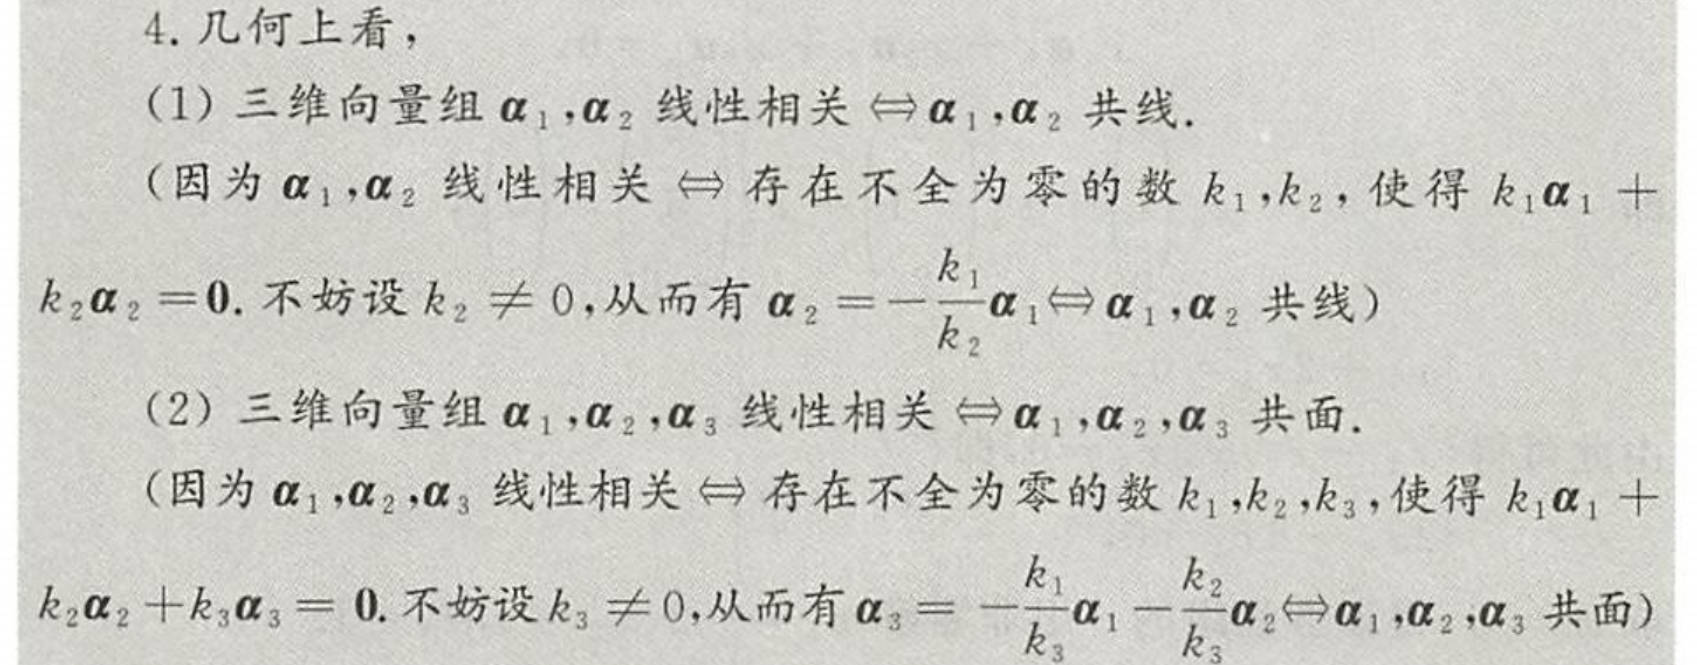 4. 几何上看，
(1) 三维向量组 α₁,α₂ 线性相关 ⇔ α₁,α₂ 共线.
(因为 α₁,α₂ 线性相关 ⇔ 存在不全为零的数 k₁,k₂, 使得 k₁α₁ +
k₂α₂ = 0. 不妨设 k₂ ≠ 0,从而有 α₂ = -\frac{k₁}{k₂}α₁ ⇔ α₁,α₂ 共线)
(2) 三维向量组 α₁,α₂,α₃ 线性相关 ⇔ α₁,α₂,α₃ 共面.
(因为 α₁,α₂,α₃ 线性相关 ⇔ 存在不全为零的数 k₁,k₂,k₃,使得 k₁α₁ +
k₂α₂ + k₃α₃ = 0. 不妨设 k₃ ≠ 0,从而有 α₃ = -\frac{k₁}{k₃}α₁ - \frac{k₂}{k₃}α₂ ⇔ α₁,α₂,α₃ 共面)